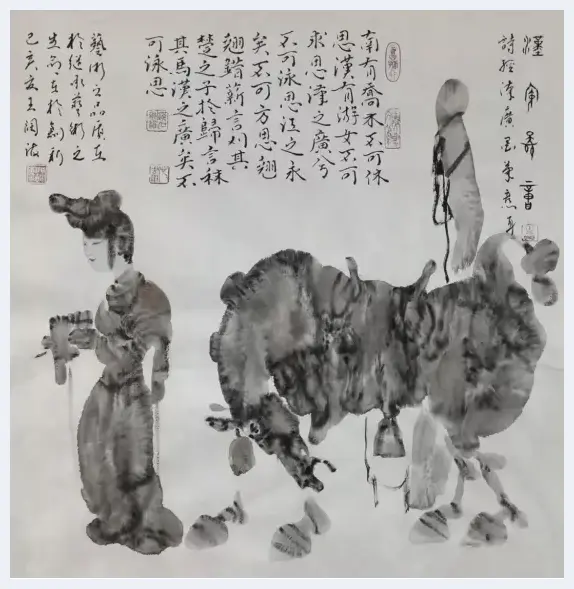 詩經漢廣
南有喬木不可休
思漢有游女不可
求思漢之廣兮
不可泳思江之永
矣不可方思翹
翹錯薪言刈其
楚之子於歸言秣
其馬漢之廣矣不
可泳思
藝術之品在
於繼承藝術之
生命在於創新
己亥夏王阔海